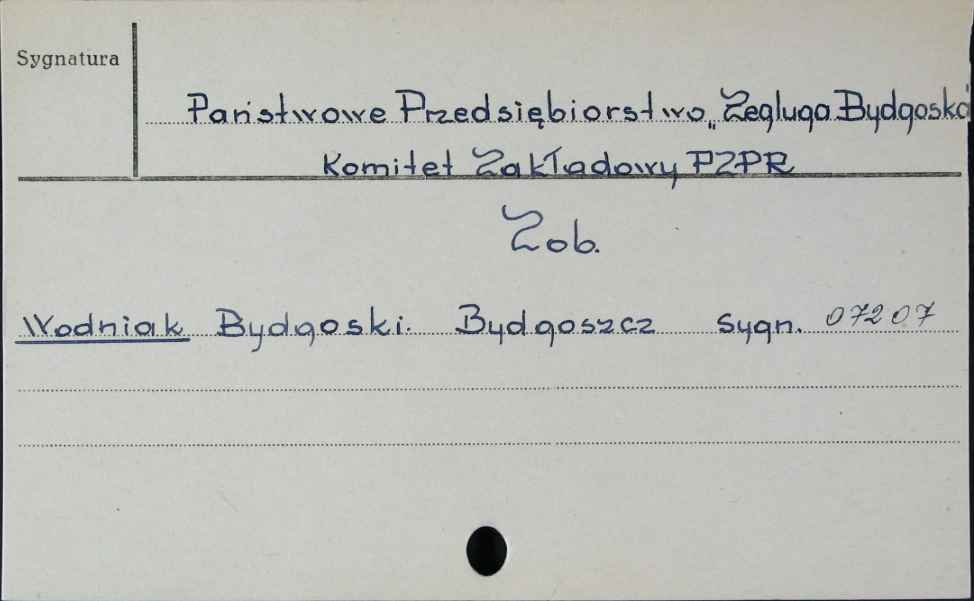 Sygnatura
Państwowe Przedsiębiorstwo „Żegluga Bydgoska"
Komitet Zakładowy PZPR
Zob.
Wodniak Bydgoski. Bydgoszcz sygn. 07207